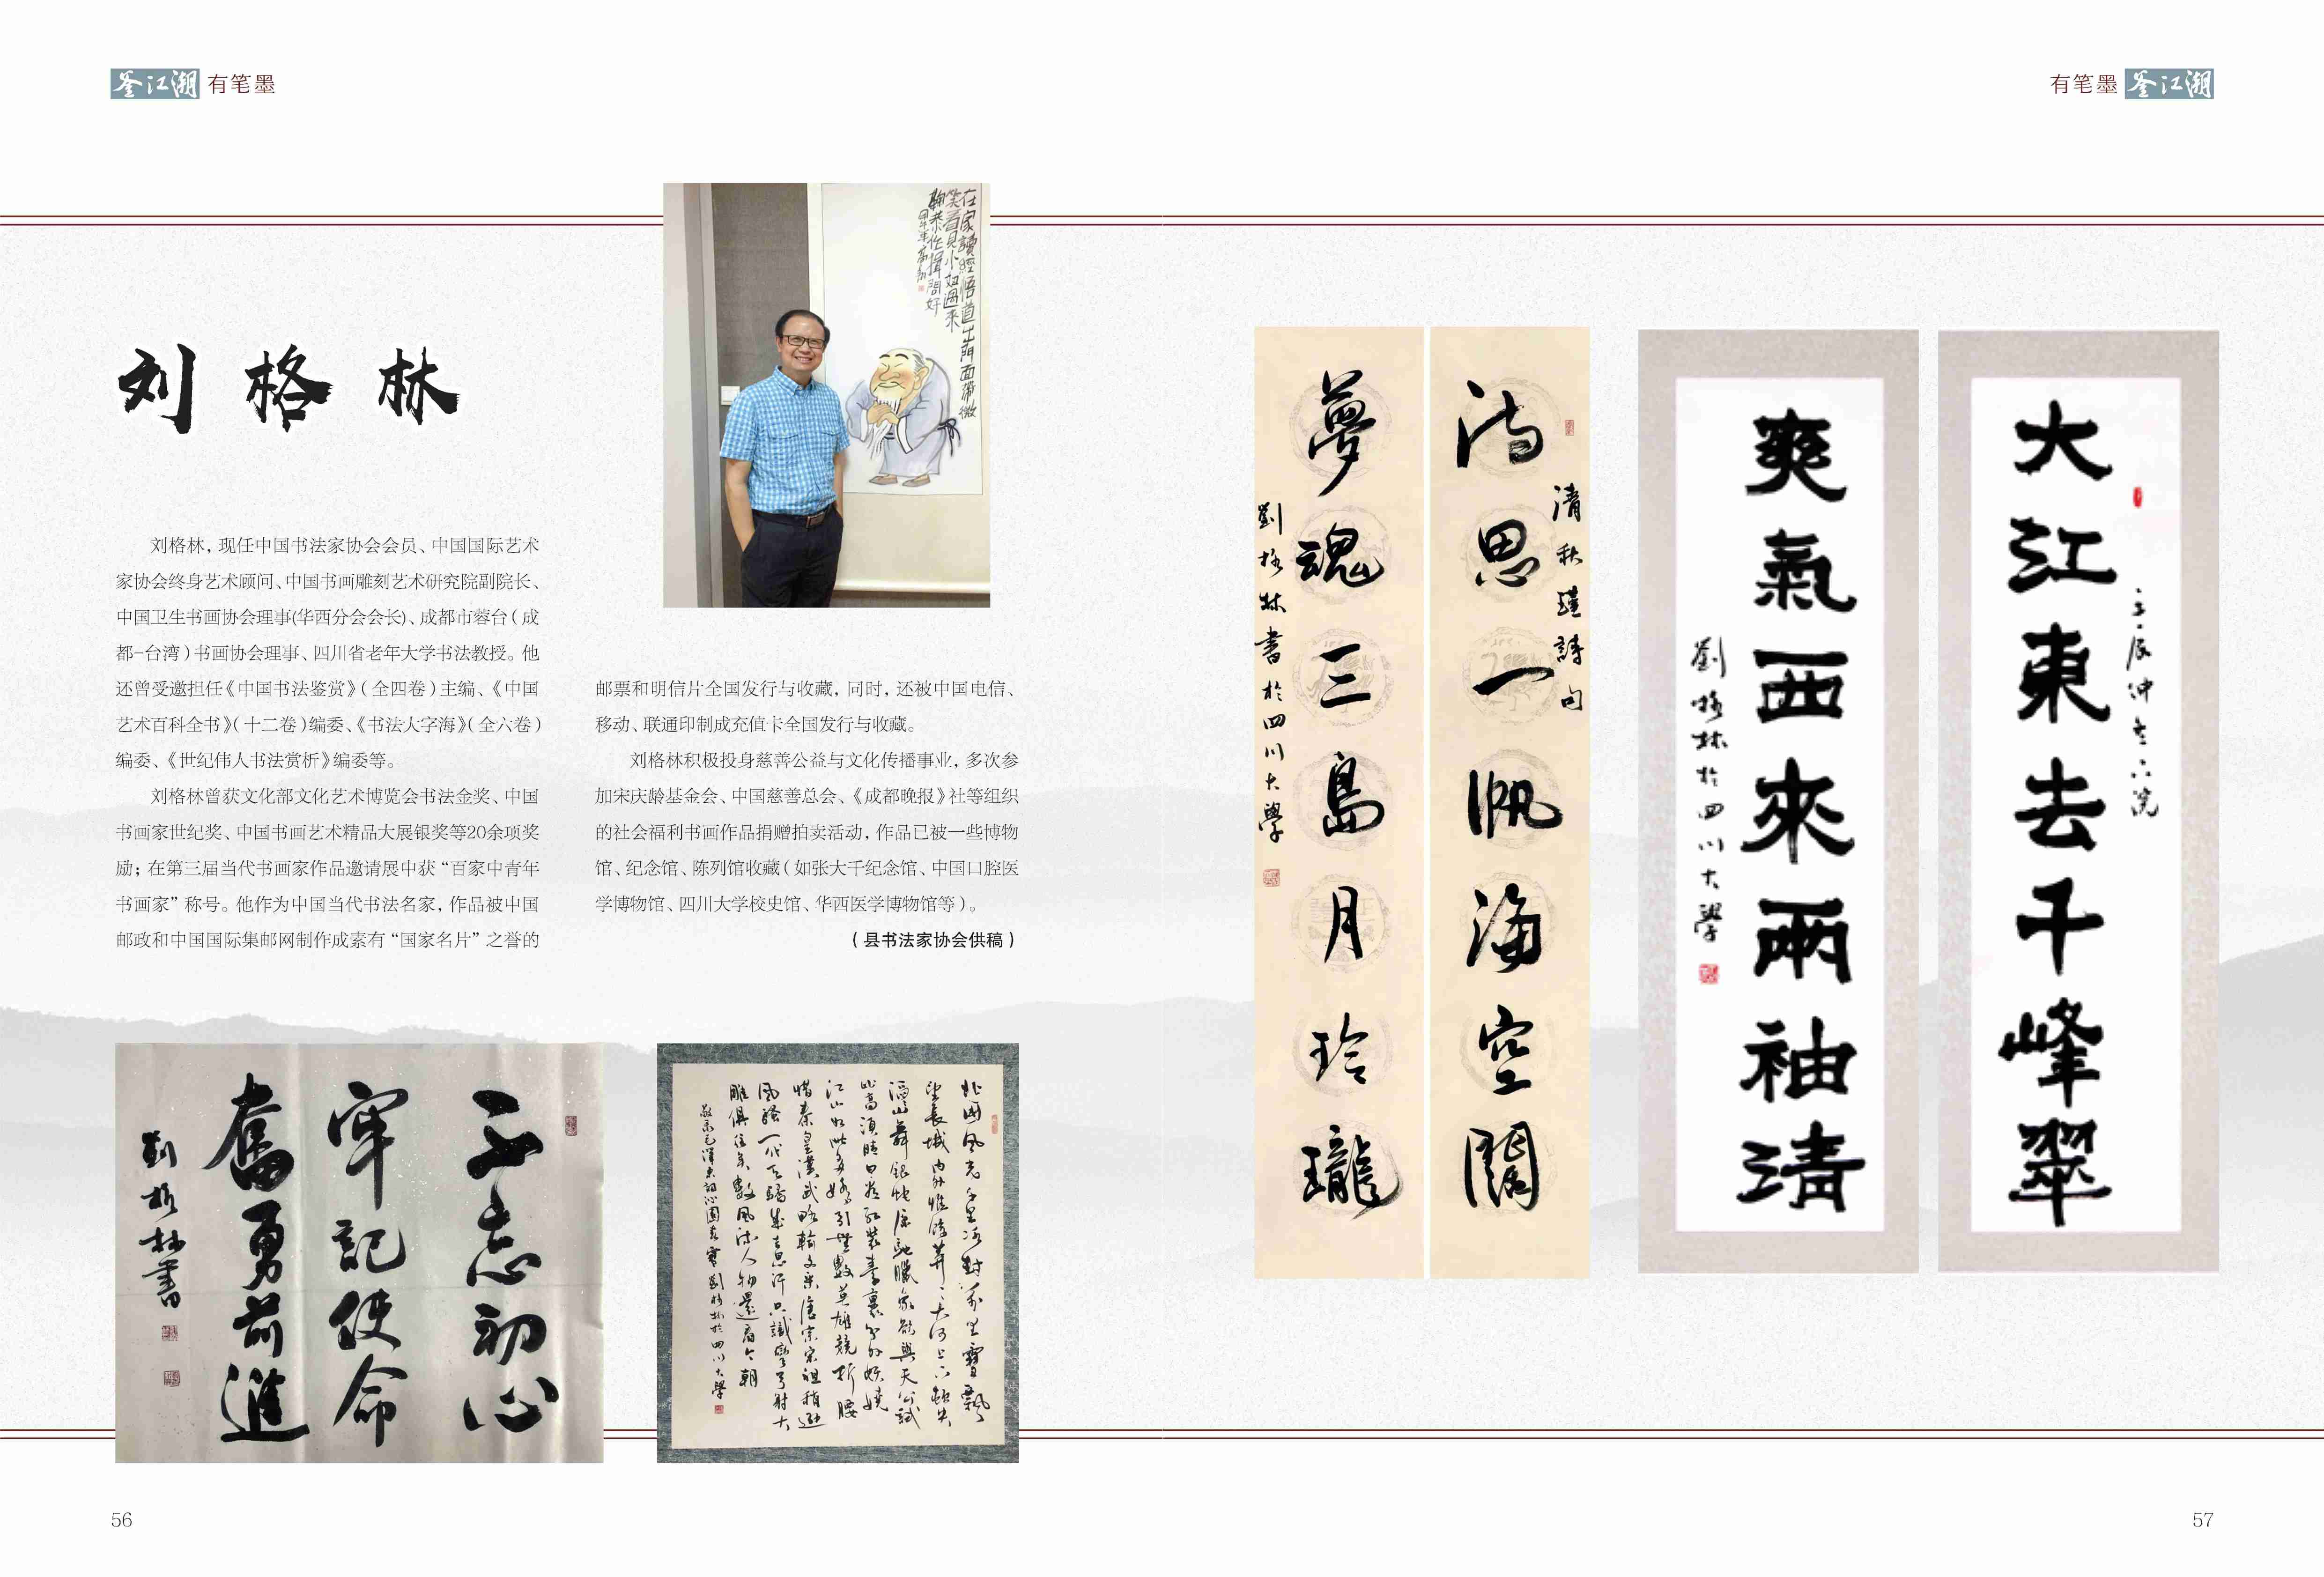 釜江潮 有笔墨
有笔墨 釜江潮
在家读经悟道出门面带微
笑看见小姐过来
鞠恭作揖問好
刘格林
刘格林，现任中国书法家协会会员、中国国际艺术
家协会终身艺术顾问、中国书画雕刻艺术研究院副院长、
中国卫生书画协会理事(华西分会会长)、成都市蓉台（成
都-台湾）书画协会理事、四川省老年大学书法教授。他
还曾受邀担任《中国书法鉴赏》（全四卷）主编、《中国
艺术百科全书》（十二卷）编委、《书法大字海》（全六卷）
编委、《世纪伟人书法赏析》编委等。
刘格林曾获文化部文化艺术博览会书法金奖、中国
书画家世纪奖、中国书画艺术精品大展银奖等20余项奖
励；在第三届当代书画家作品邀请展中获“百家中青年
书画家”称号。他作为中国当代书法名家，作品被中国
邮政和中国国际集邮网制作成素有“国家名片”之誉的
邮票和明信片全国发行与收藏，同时，还被中国电信、
移动、联通印制成充值卡全国发行与收藏。
刘格林积极投身慈善公益与文化传播事业，多次参
加宋庆龄基金会、中国慈善总会、《成都晚报》社等组织
的社会福利书画作品捐赠拍卖活动，作品已被一些博物
馆、纪念馆、陈列馆收藏（如张大千纪念馆、中国口腔医
学博物馆、四川大学校史馆、华西医学博物馆等）。
（县书法家协会供稿）
不忘初心
牢記使命
奮勇前進
劉格林書
北國風光千里冰封萬里雪飄
望長城內外惟餘莽〻大河上下頓失
滔〻山舞銀蛇原馳臘象欲與天公試
比高須晴日看紅裝素裹分外妖嬈
江山如此多嬌引無數英雄競折腰
惜秦皇漢武略輸文采唐宗宋祖稍遜
風騷一代天驕成吉思汗只識彎弓射大
雕俱往矣數風流人物還看今朝
敬录毛澤東詞沁園春雪劉格林於四川大學
清秋瑾詩句
詩思一帆海空闊
夢魂三島月玲瓏
劉格林書於四川大學
大江東去千峰翠
爽氣西來兩袖清
劉格林於四川大學
56
57